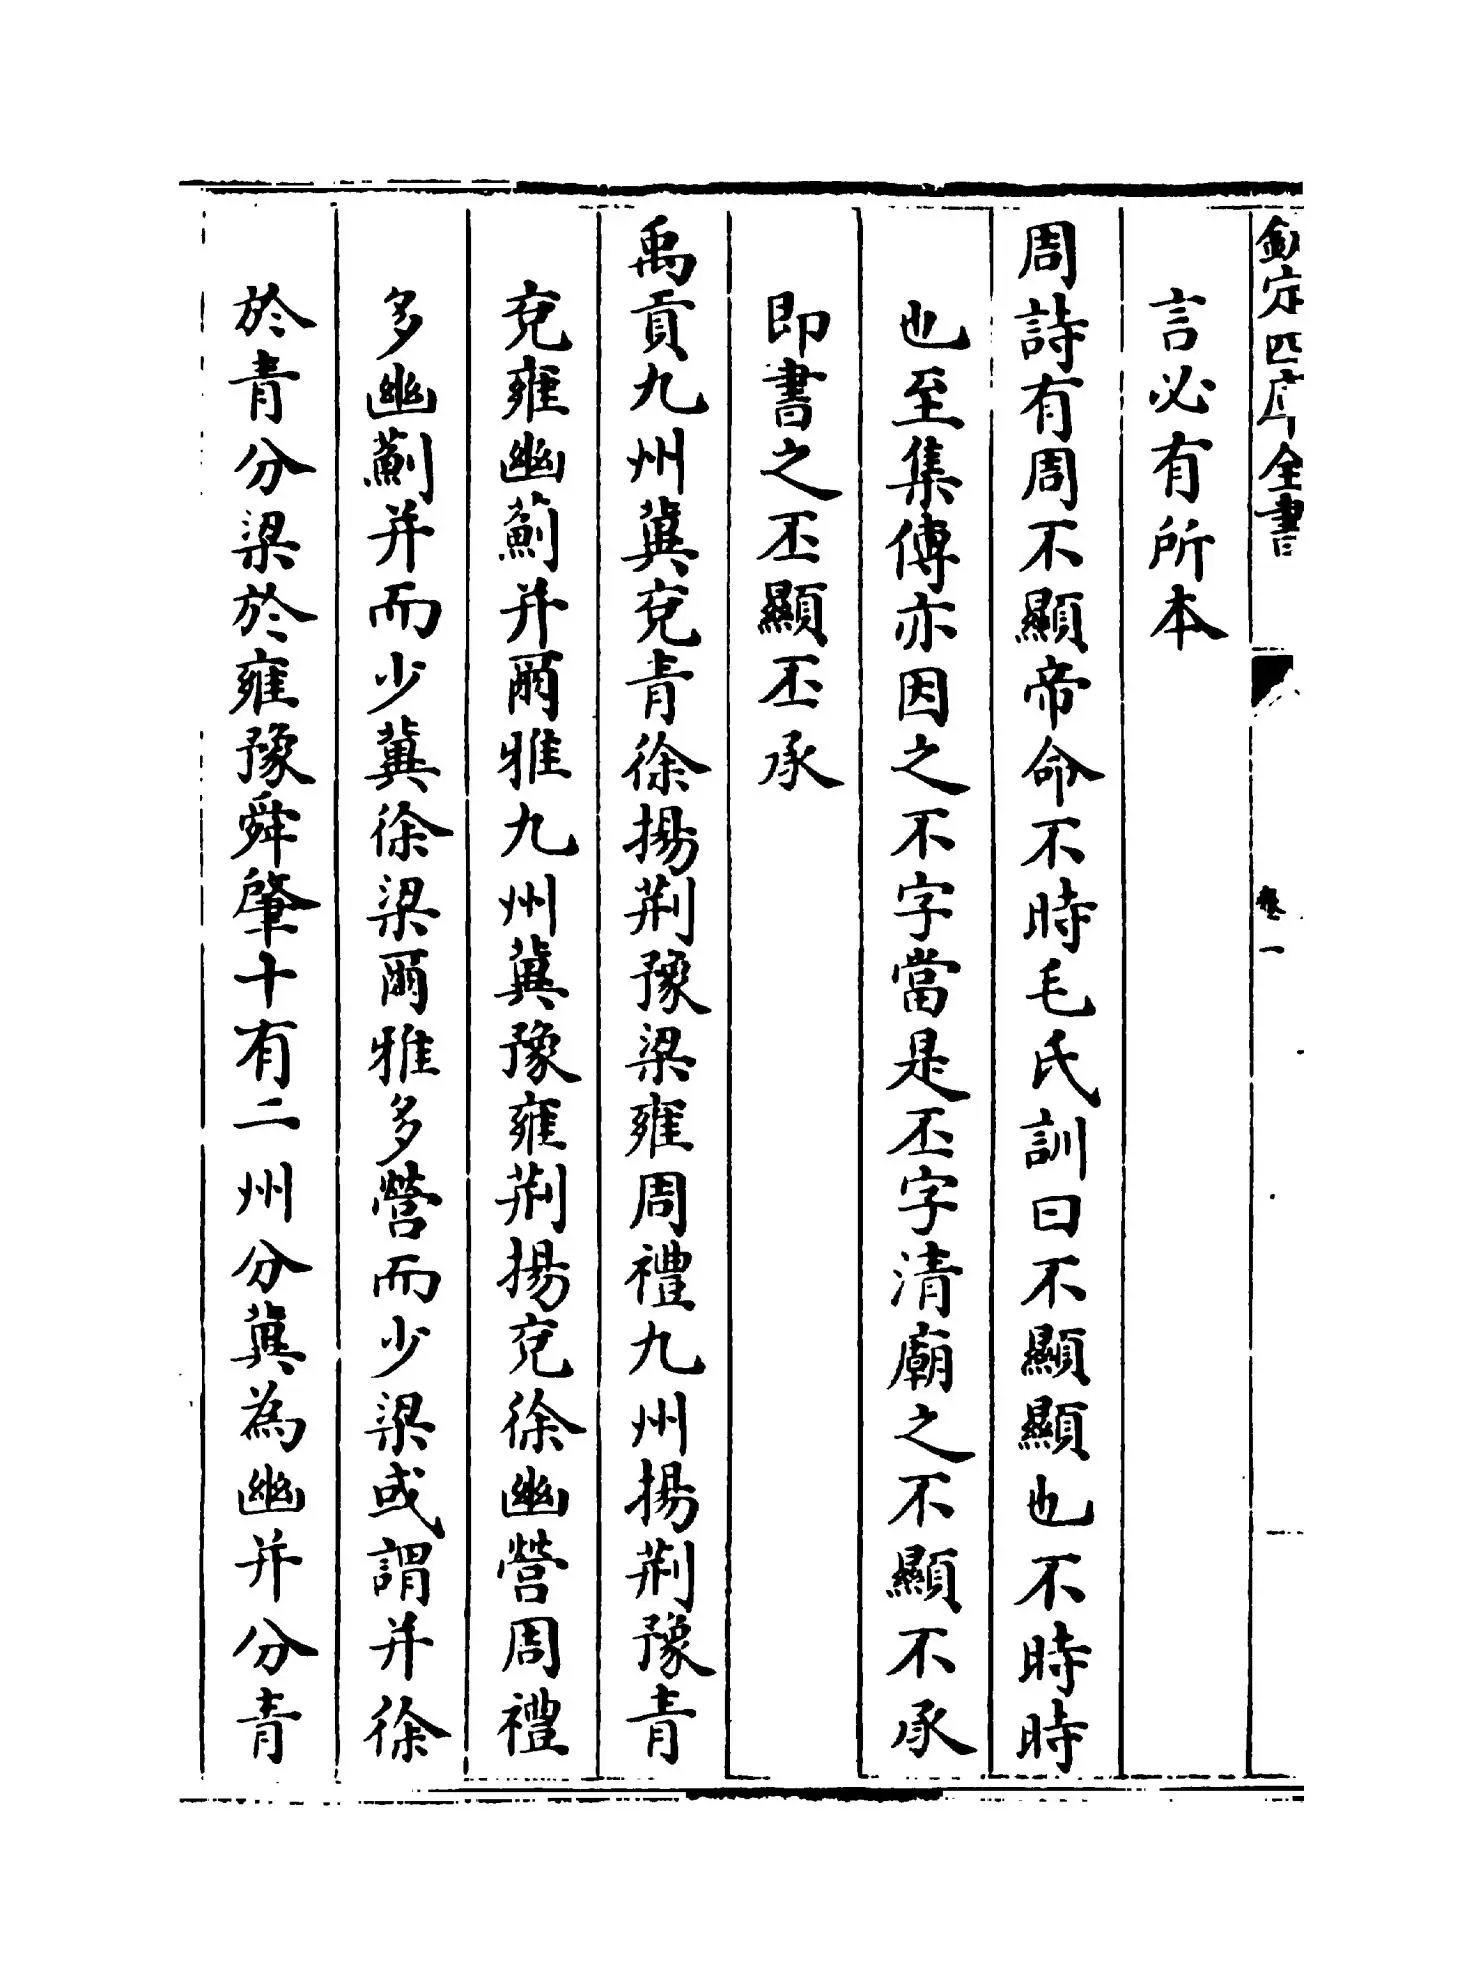 欽定四庫全書
卷一
言必有所本
周詩有周不顯帝命不時毛氏訓曰不顯顯也不時時
也至集傳亦因之不字當是丕字清廟之不顯不承
即書之丕顯丕承
禹貢九州冀兗青徐揚荆豫梁雍周禮九州揚荆豫青
兗雍幽薊并爾雅九州冀豫雍荆揚兗徐幽營周禮
多幽薊并而少冀徐梁爾雅多營而少梁或謂并徐
於青分梁於雍豫舜肇十有二州分冀為幽并分青